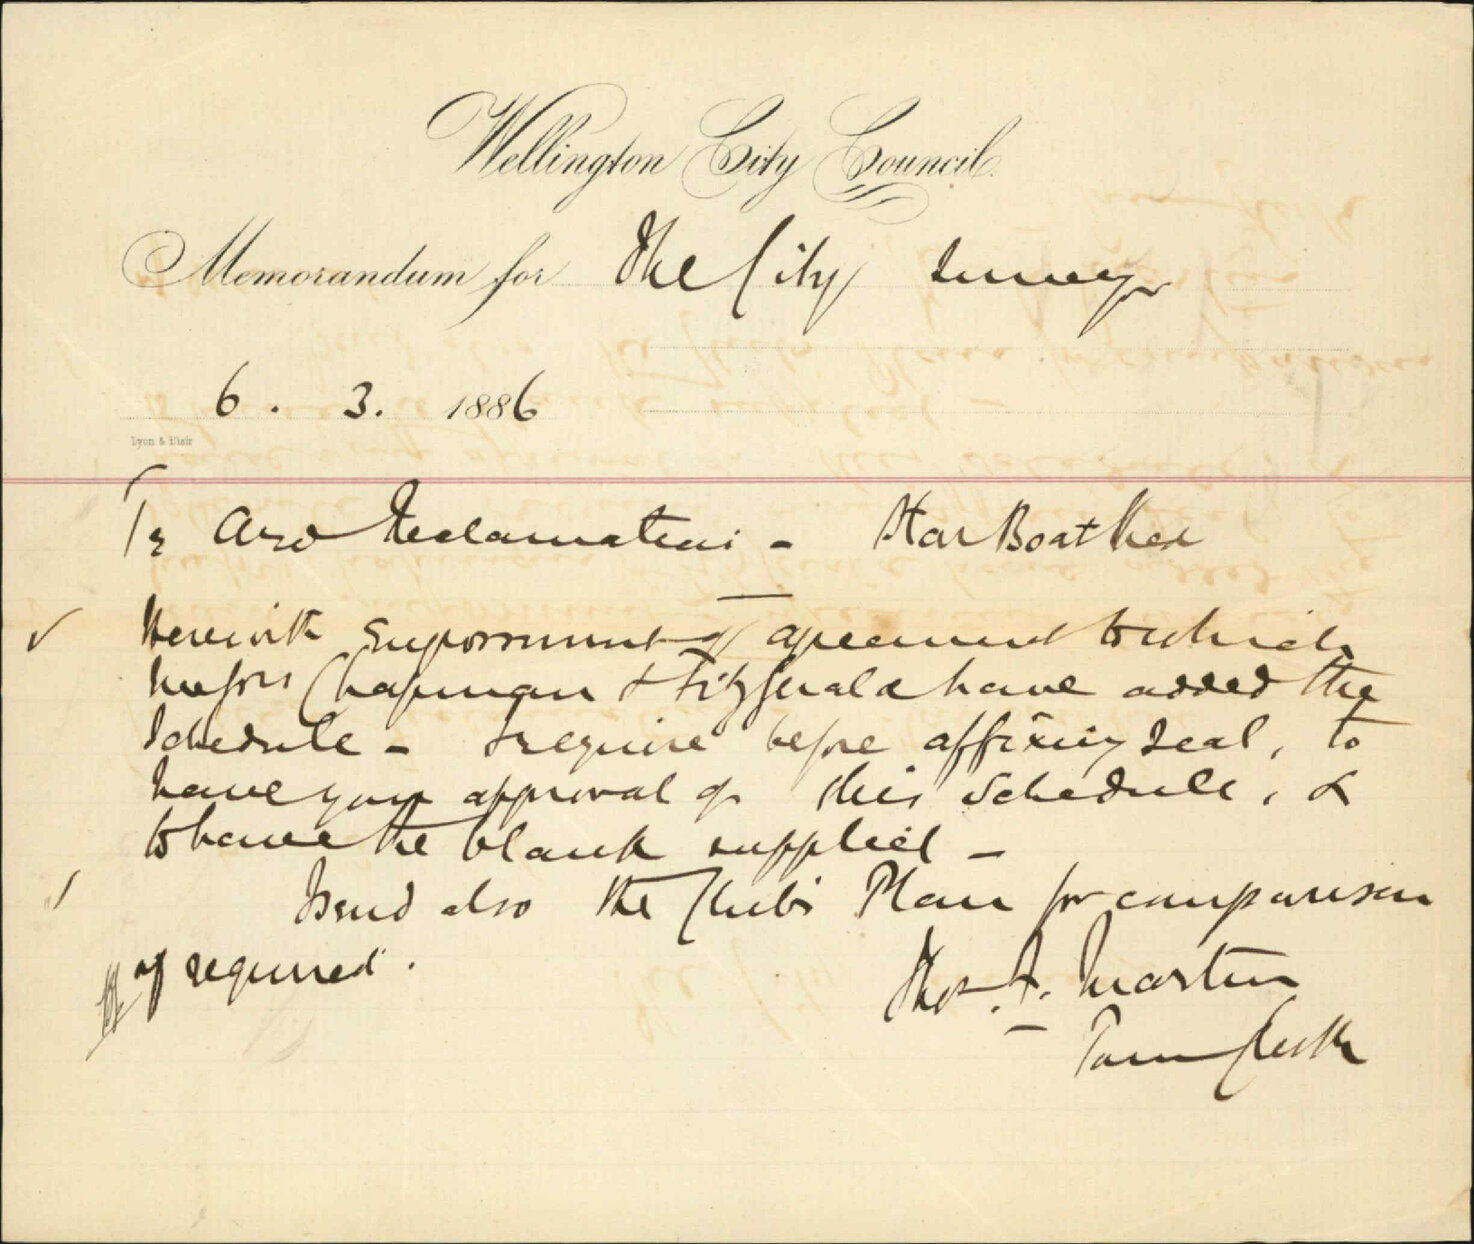 Wellington City Council.
Memorandum for The City Surveyor
6 . 3. 1886
Lyon & Blair
Te Aro Reclamation - Star Boat Shed
Herewith Engrossment of agreement to which
Messrs Chapman & Fitzgerald have added the
Schedule - I require before affixing Seal, to
have your approval of this Schedule, &
to have the blank supplied -
I send also the Club's Plan for comparison
if required.
Thos. F. Martin
Town Clerk